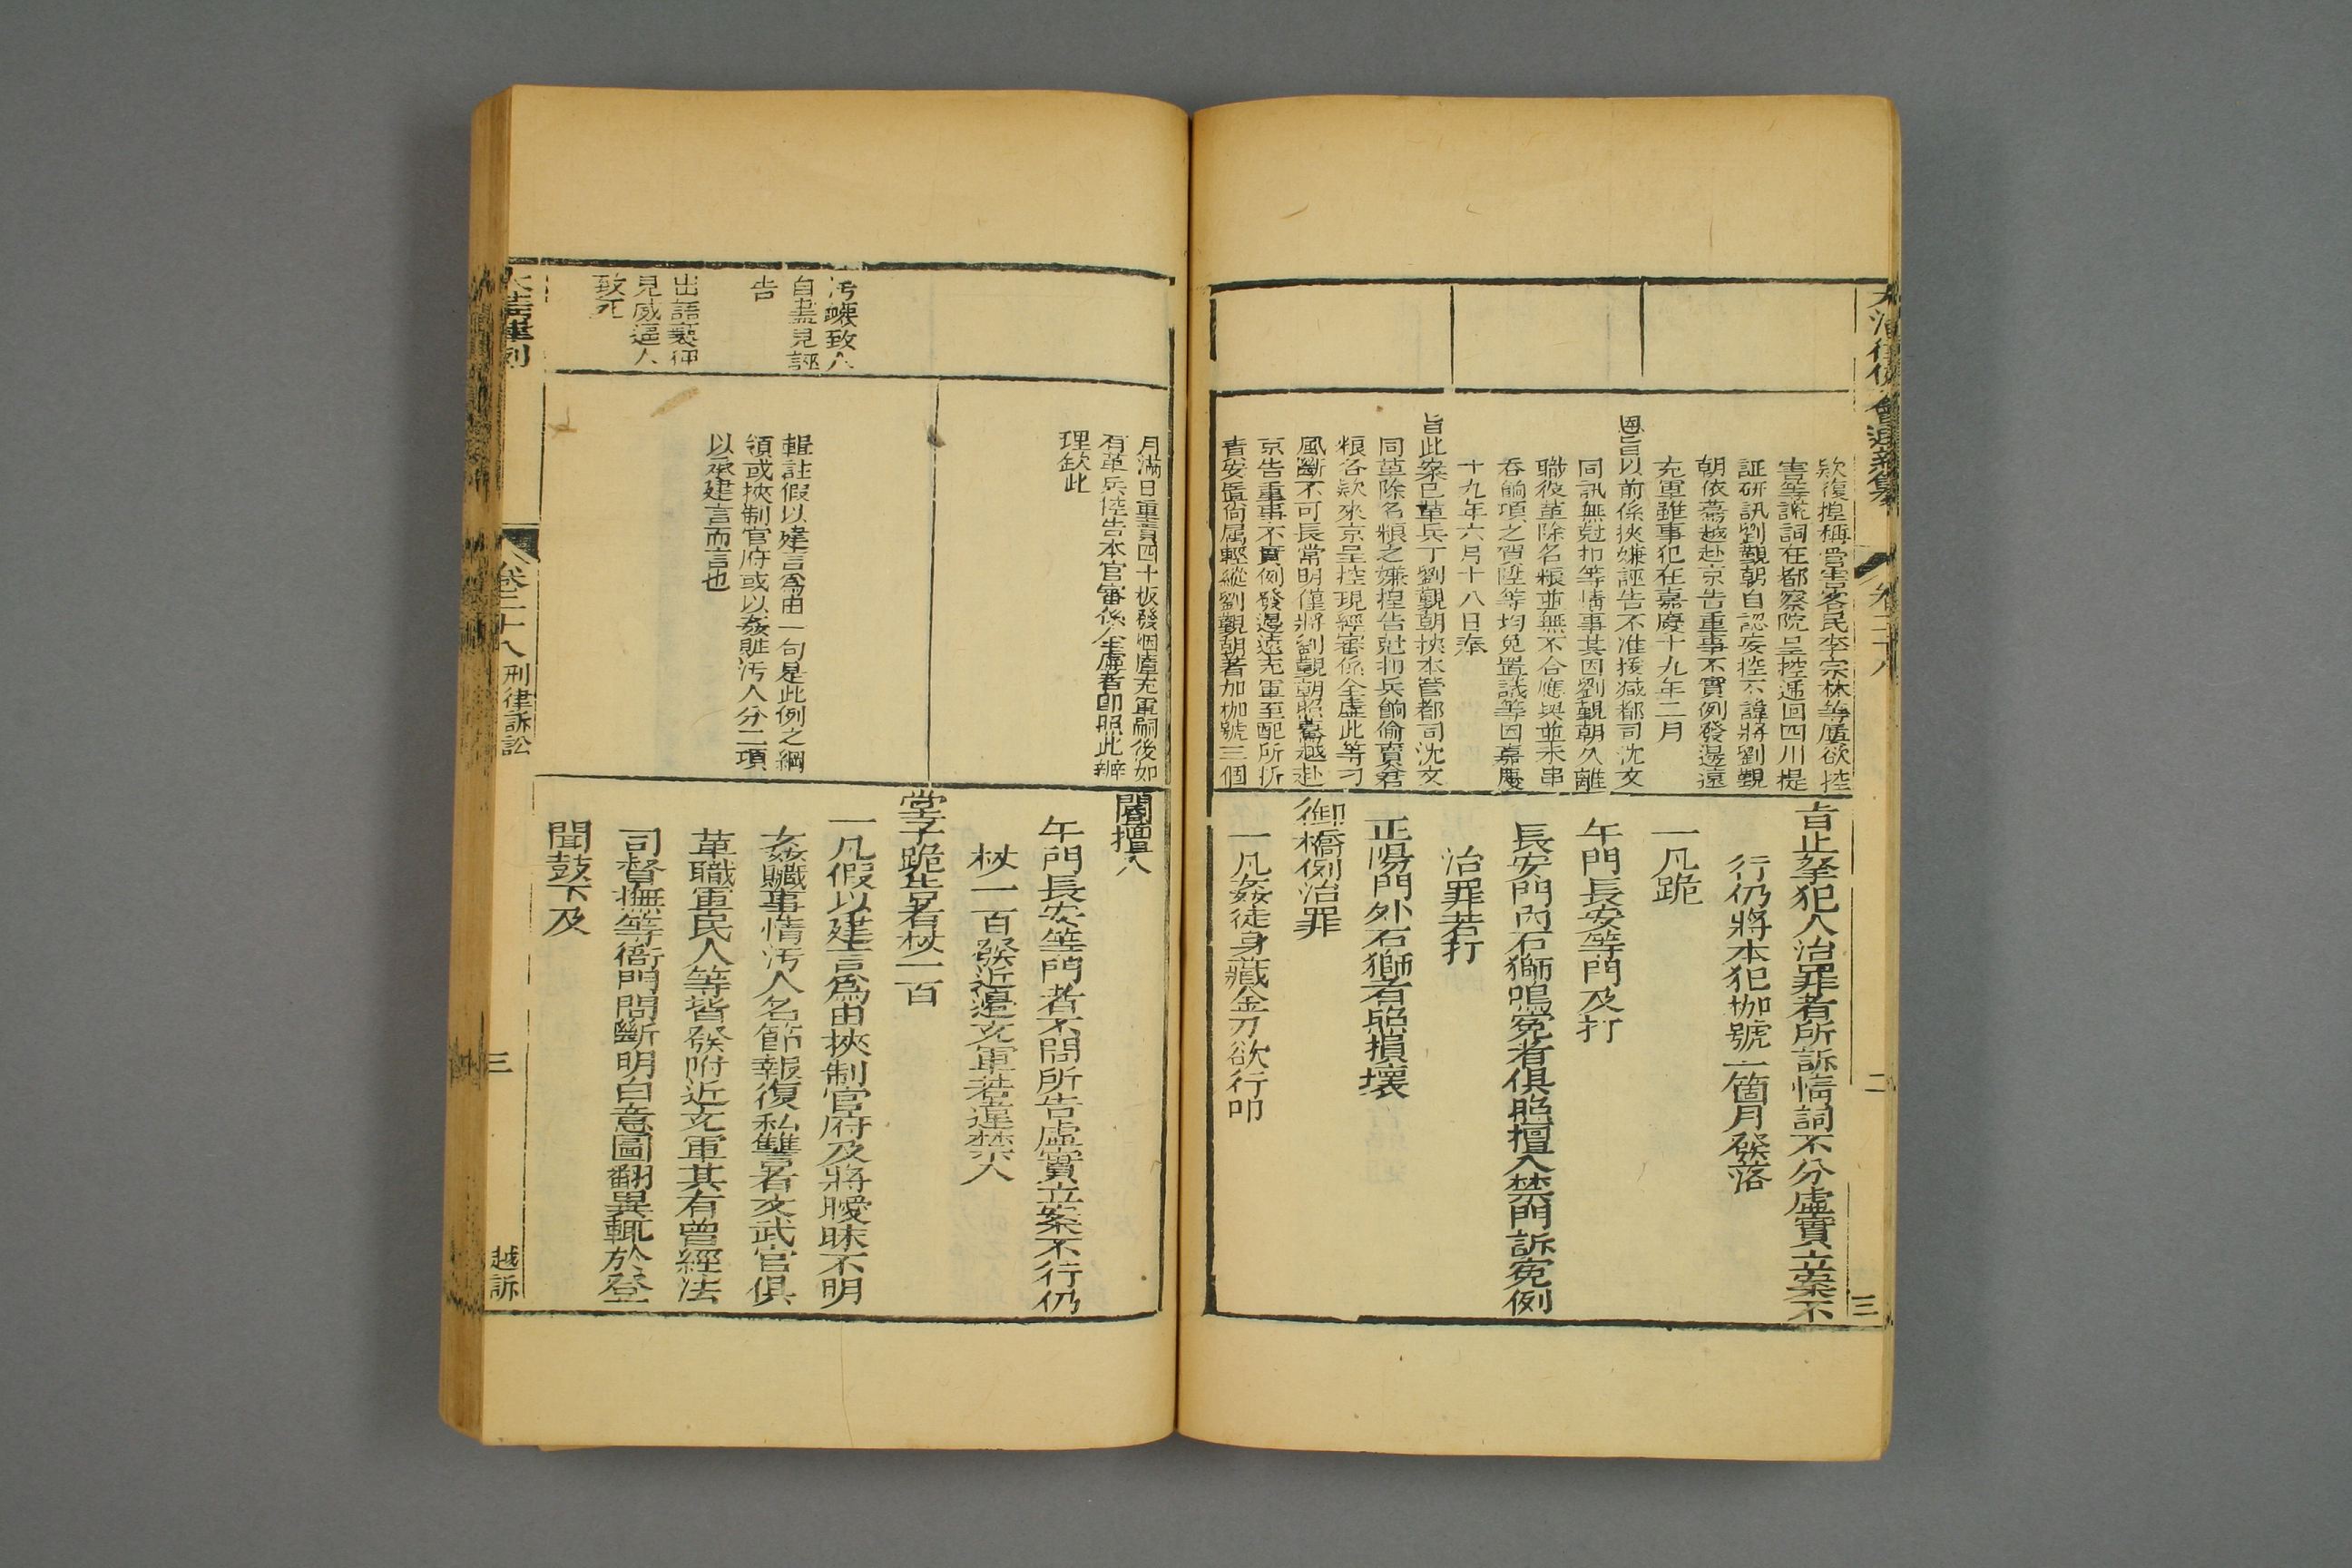 大清律例會通新纂
卷二十八
二
三
款復捏稱嘗害客民李宗林等屢欲控
害等謊詞在都察院呈控遞回四川提
証研訊劉觀朝自認妄控不諱將劉觀
朝依驀越赴京告重事不實例發邊遠
充軍雖事犯在嘉慶十九年二月
恩旨以前係挾嫌誣告不准援减都司沈文
同訊無尅扣等情事其因劉觀朝久離
職役革除名粮並無不合應與並未串
吞餉項之賀陞等均免置議等因嘉慶
十九年六月十八日奉
旨此案已革兵丁劉觀朝挾本管都司沈文
同革除名粮之嫌捏告尅扣兵餉偷賣倉
粮各款來京呈控現經審係全虛此等刁
風斷不可長常明僅將劉觀朝照驀越赴
京告重事不實例發邊遠充軍至配所折
責安置尚属輕縱劉觀朝著加枷號三個
旨止拏犯人治罪者所訴情詞不分虛實立案不
行仍將本犯枷號一箇月發落
一凡跪
午門長安等門及打
長安門內石獅鳴冤者俱照擅入禁門訴冤例
治罪若打
正陽門外石獅者照損壞
御橋例治罪
一凡姦徒身藏金刀欲行叩
汚衊致人
自盡見誣
告
出語褻狎
見威逼人
致死
月滿日重責四十板發烟瘴充軍嗣後如
有革兵陸告本官審係全虛者即照此辦
理欽此
輯註假以建言爲由一句是此例之綱
領或挾制官府或以姦賍汚人分二項
以承建言而言也
閽擅入
午門長安等門者不問所告虛實立案不行仍
杖一百發近邊充軍若違禁入
堂子跪告者杖一百
一凡假以建言爲由挾制官府及將曖昧不明
姦贓事情汚人名節報復私讐者文武官俱
革職軍民人等皆發附近充軍其有曾經法
司督撫等衙門問斷明白意圖翻異輒於登
聞鼓下及
大清律例
卷二十八
刑律訴訟
三
越訴